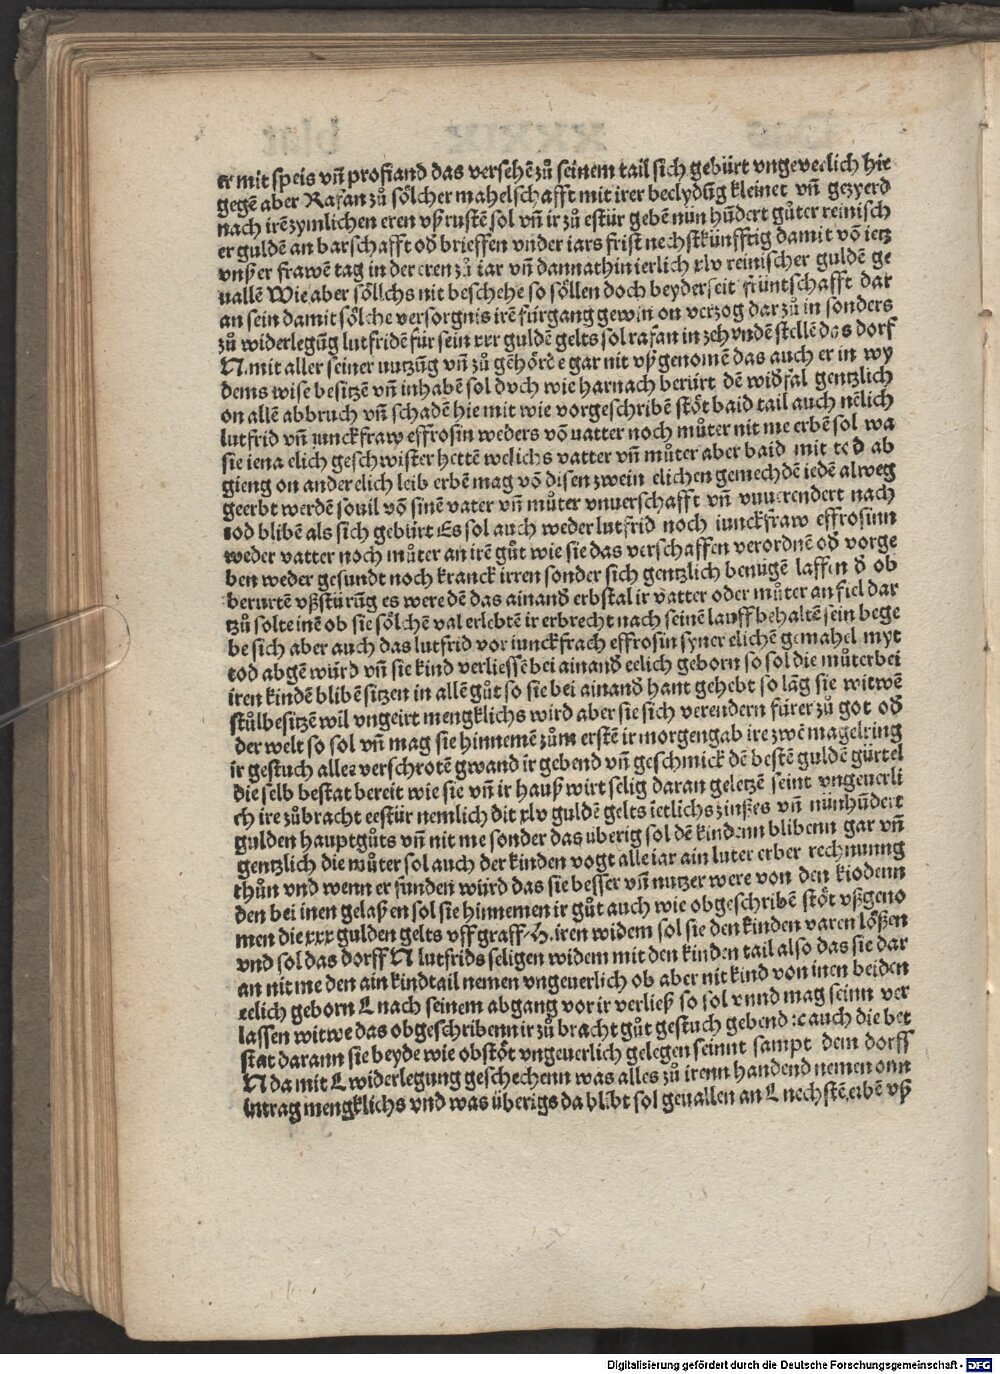 er mit speis vñ profiand das versehē zů seinem tail sich gebürt vngeverlich hie
gegē aber Rafan zů sölcher mahelschafft mit irer beclydūg kleinet vñ gezyerd
nach irē zymlichen eren vßrustē sol vñ ir zů estür gebē nün hūdert gůter reinisch
er guldē an barschafft od brieffen vnder iars frist nechstkünfftig damit vō ietz
vnßer frawē tag in der eren zů iar vñ dannathin ierlich xlv reinischer guldē ge
uallē Wie aber söllchs nit beschehe so söllen doch beyderseit früntschafft dar
an sein damit sölche versorgnis irē fürgang gewin on verzog dar zů in sonders
zů widerlegūg lutfridē für sein xxx guldē gelts sol rafan in zehvndē stellē das dorf
N. mit aller seiner nutzūg vñ zů gehörde gar nit vßgenomē das auch er in wy
dems wise besitzē vñ inhabē sol doch wie harnach berürt dē widfal gentzlich
on allē abbruch vñ schadē hie mit wie vorgeschribē stöt baid tail auch nēlich
lutfrid vñ iunckfraw effrosin weders vō vatter noch můter nit me erbē sol wa
sie iena elich geschwister hettē welichs vatter vñ můter aber baid mit tod ab
gieng on ander elich leib erbē mag vō disen zwein elichen gemechdē iedē alweg
geerbt werdē souil vō sinē vater vñ můter vnuerschafft vñ vnuerendert nach
tod blibē als sich gebürt Es sol auch weder lutfrid noch iunckfraw effrosinn
weder vatter noch můter an irē gůt wie sie das verschaffen verordnē od vorge
ben weder gesundt noch kranck irren sonder sich gentzlich benügē lassen d ob
berurtē vßstürūg es were dē das ainand erbstal ir vatter oder můter an fiel dar
tzů solte inē ob sie sölchē val erlebtē ir erbrecht nach seinē lauff behaltē sein bege
be sich aber auch das lutfrid vor iunckfrach effrosin syner elichē gemahel myt
tod abgē würd vñ sie kind verliessē bei ainand eelich geborn so sol die můter bei
iren kindē blibē sitzen in allē gůt so sie bei ainand hant gehebt so lāg sie witwē
stůl besitzē wil vngeirt mengklichs wird aber sie sich verendern fürer zů got od
der welt so sol vñ mag sie hinnemē zům erstē ir morgengab ire zwē magelring
ir gestuch alles verschrotē gwand ir gebend vñ geschmick dē bestē guldē gürtel
die selb bestat bereit wie sie vñ ir hauß wirt selig daran geletzē seint vngeuerli
ch ire zůbracht eestür nemlich dit xlv guldē gelts ietlichs zinßes vñ nünhūdert
gulden hauptgůts vñ nit me sonder das überig sol dē kindenn blibenn gar vñ
gentzlich die můter sol auch der kinden vogt alle iar ain luter erber rechnunng
thůn vnd wenn er funden würd das sie besser vñ nutzer were von den kiodenn
den bei inen gelaßen sol sie hinnemen ir gůt auch wie obgeschribē stöt vßgeno
men die xxx gulden gelts vff graff H. iren widem sol sie den kinden varen lößen
vnd sol das dorff N lutfrids seligen widem mit den kinden tail also das sie dar
an nit me den ain kindtail nemen vngeuerlich ob aber nit kind von inen beiden
eelich geborn L nach seinem abgang vor ir verließ so sol vnnd mag seinn ver
lassen witwe das obgeschribenn ir zů bracht gůt gestuch gebend ꝛc auch die bet
stat darann sie beyde wie obstöt vngeuerlich gelegen seinnt sampt dem dorff
N da mit L widerlegung geschechenn was alles zů irenn handend nemen onn
intrag mengklichs vnd was überigs da blibt sol geuallen an L nechstē erbē vß
Digitalisierung gefördert durch die Deutsche Forschungsgemeinschaft - DFG